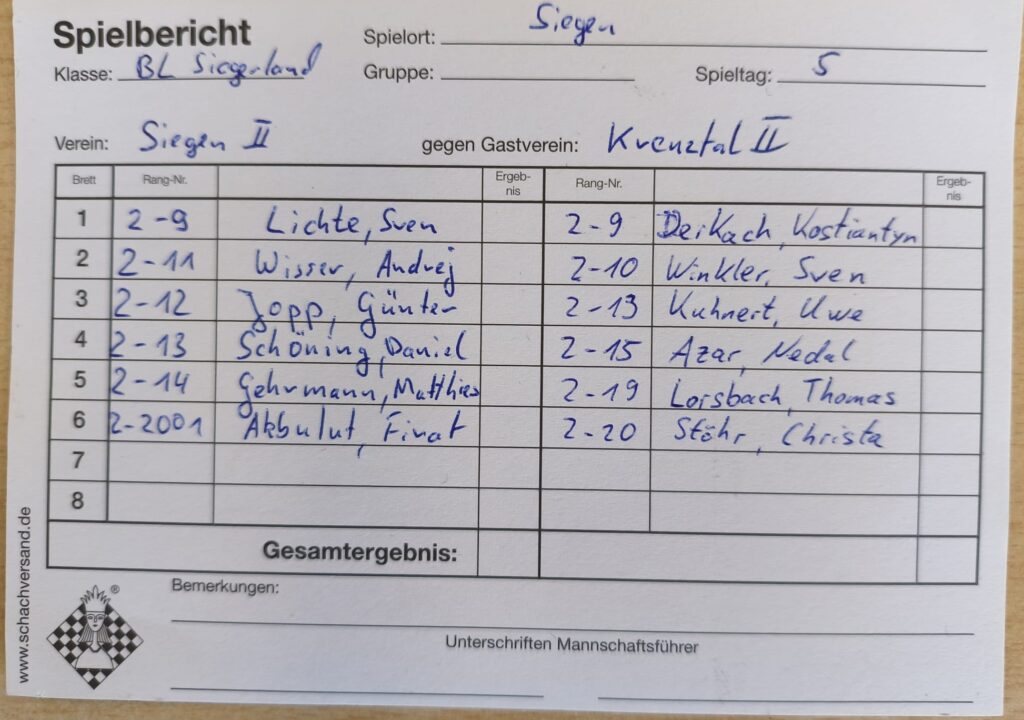 Spielbericht Spielort: Siegen
Klasse: BL Siegerland Gruppe: Spieltag: 5
Verein: Siegen II gegen Gastverein: Kreuztal II
Brett Rang-Nr. Ergeb-nis Rang-Nr. Ergeb-nis
1 2-9 Lichte, Sven 2-9 Deikach, Kostiantyn
2 2-11 Wisser, Andrej 2-10 Winkler, Sven
3 2-12 Jopp, Günter 2-13 Kuhnert, Uwe
4 2-13 Schöning, Daniel 2-15 Azar, Nedal
5 2-14 Gehrmann, Matthias 2-19 Loisbach, Thomas
6 2-2001 Akbulut, Firat 2-20 Stöhr, Christa
7
8
Gesamtergebnis:
Bemerkungen:
Unterschriften Mannschaftsführer
www.schachversand.de
®